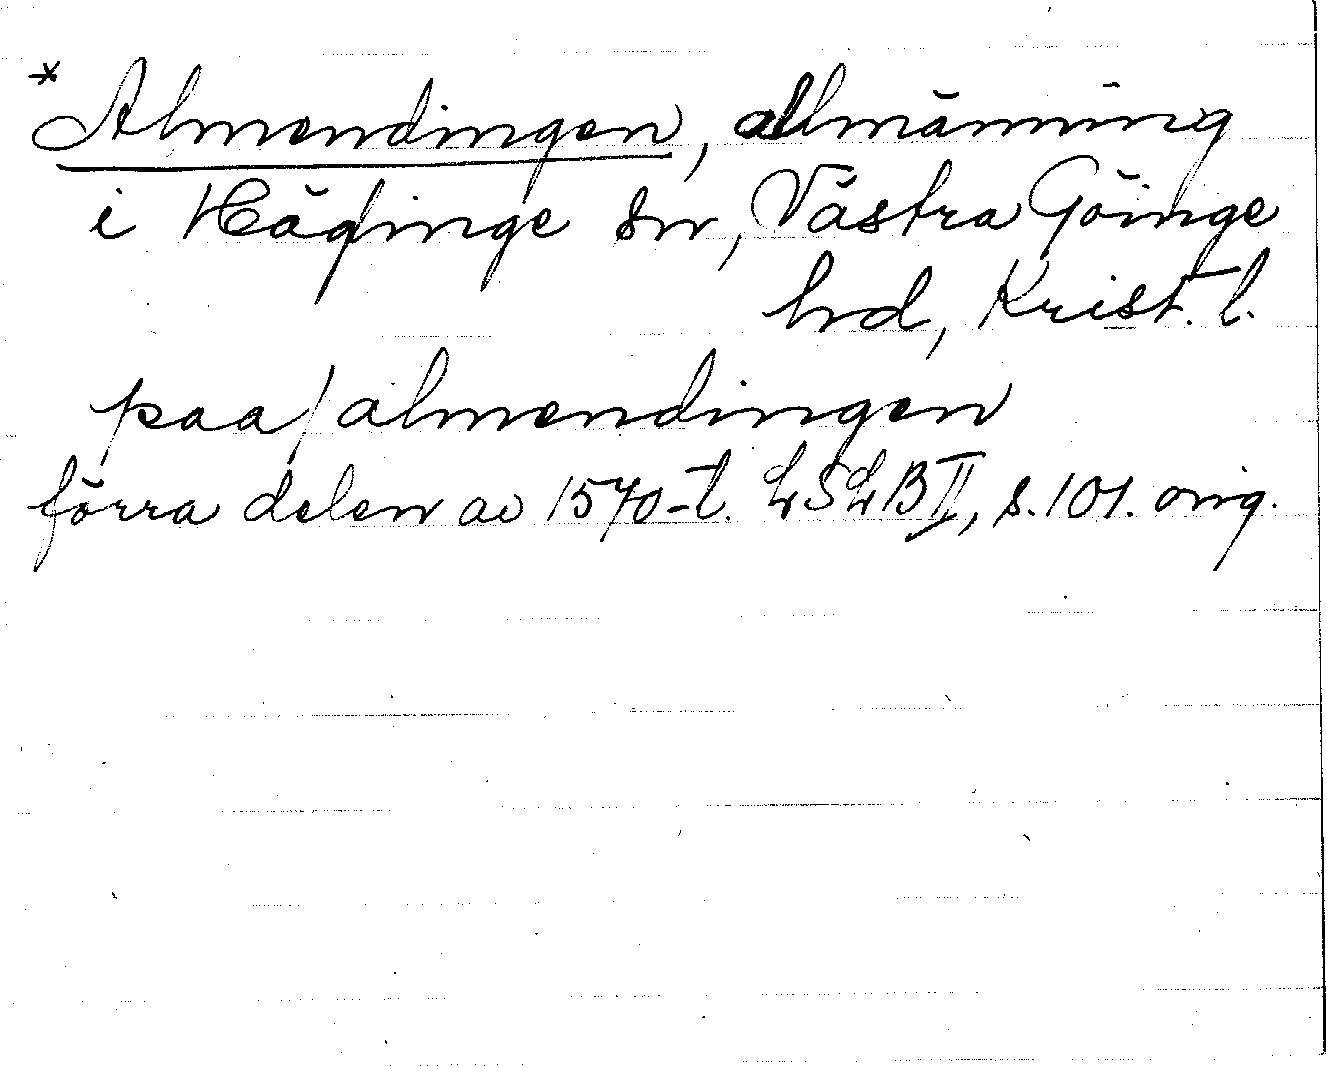 *Almendingen, allmänning
i Häglinge sn, Västra Göinge
hd, Krist. l.
paa/almendingen
förra delen av 1570-t. LSLB II, s. 101. orig.